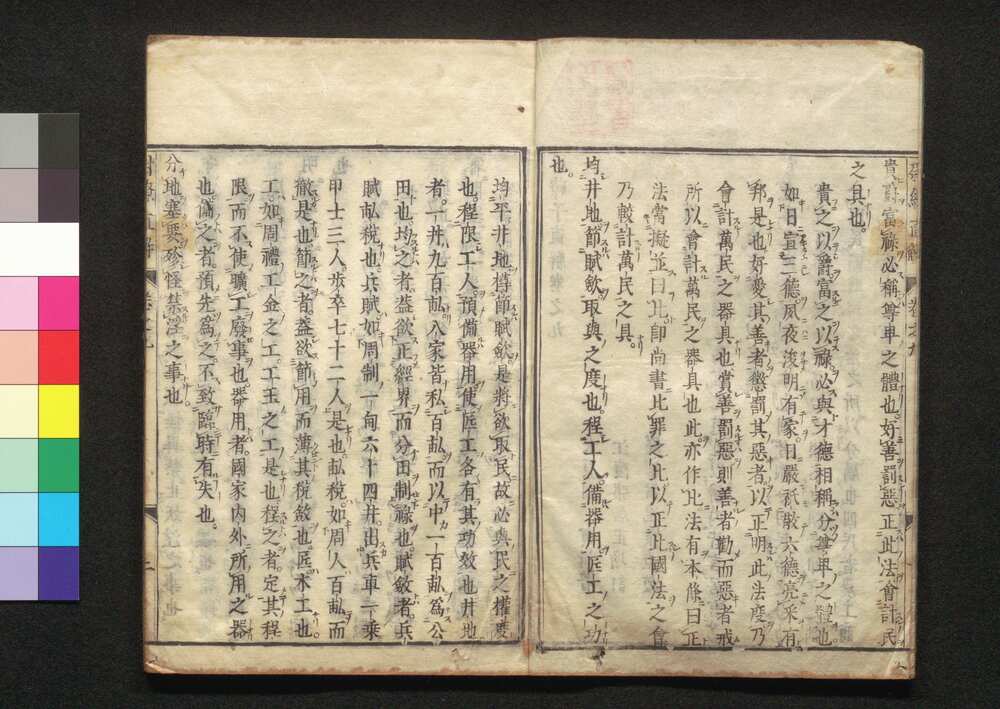 貴爵富祿必稱尊卑之體也好善罰惡正此法會計民
之具也
貴之以爵富之以祿必與才德相稱分尊卑之體也
如日宣三德夙夜浚明有家日嚴祗敬六德亮采有
邦是也好愛其善者懲罰其惡者以正明此法度乃
會計萬民之器具也賞善罰惡則善者勸而惡者戒
所以會計萬民之器具也此亦作比法有本條曰正
法當擬並曰比即尚書比罪之比以正比國法之會
乃較計萬民之具
均井地節賦斂取與之度也程工人備器用匠工之功
也
均平井地撙節賦斂是將欲取民故必與民之權度
也程限工人預備器用使匠工各有其功效也井地
者一井九百畝八家皆私百畝而以中一百畝為公
田也均之者蓋欲正經界而分田制祿也賦斂者兵
賦畝稅也兵賦如周制一甸六十四井出兵車一乘
甲士三人步卒七十二人是也畝稅如周人百畝而
徹是也節之者蓋欲節用而薄其稅斂也匠木工也
工如周禮工金之工工玉之工是也程之者定其程
限而不使曠工廢事也器用者國家內外所用之器
也備之者預先為之不致臨時有失也
分地塞要殄怪禁淫之事也